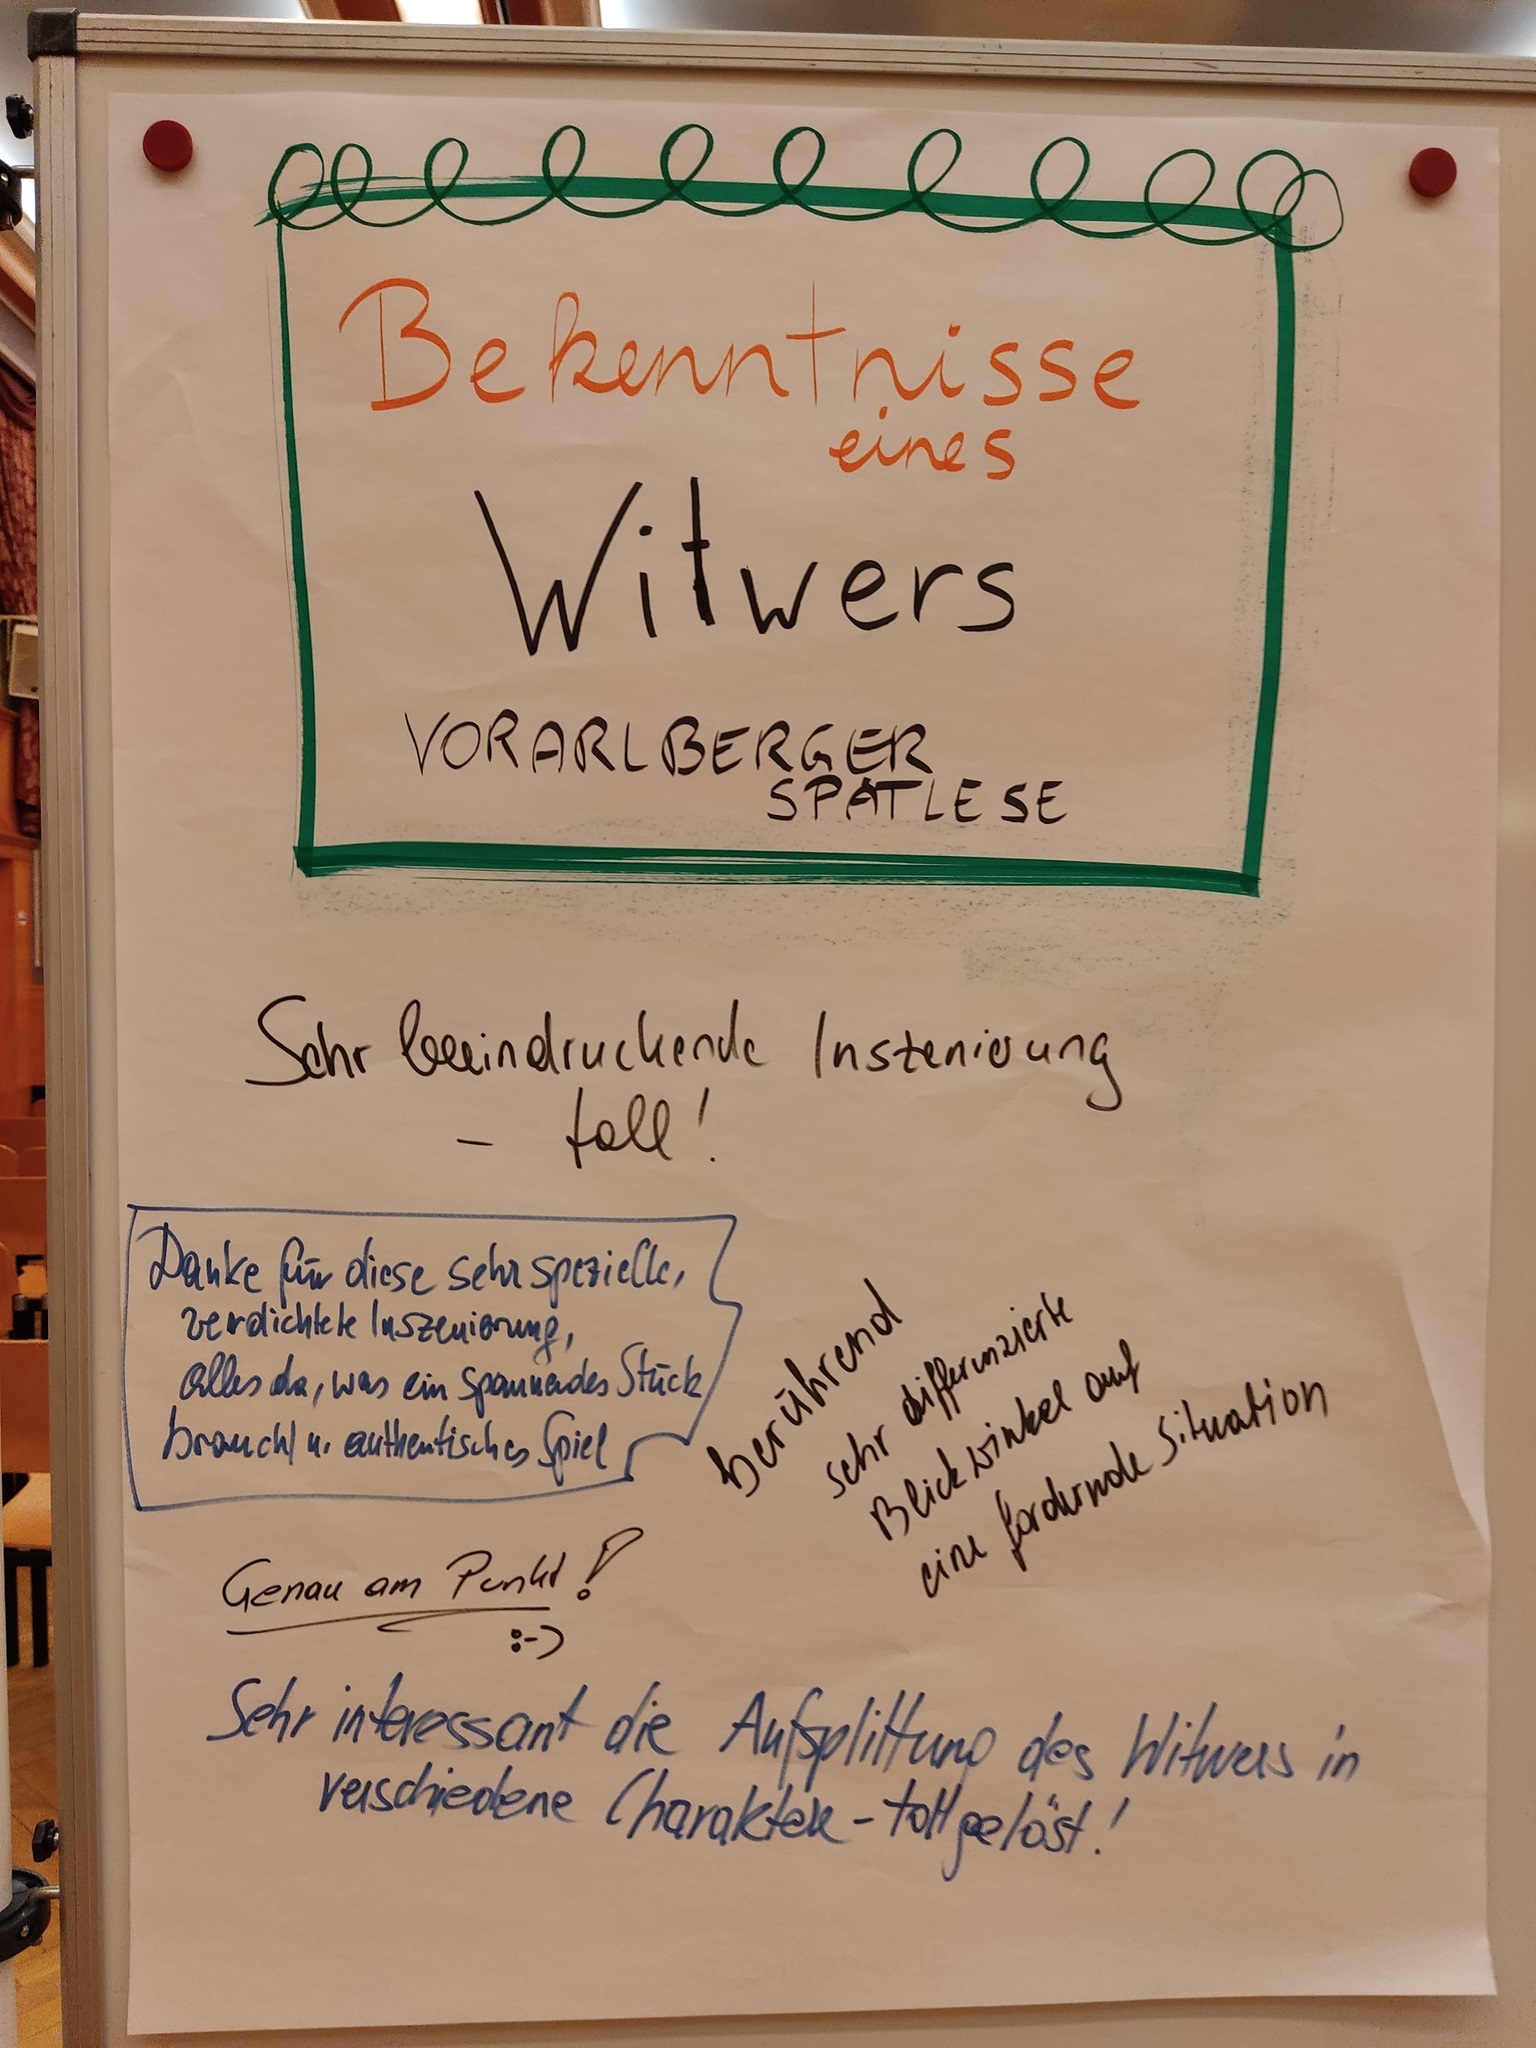 Bekenntnisse
eines
Witwers
VORARLBERGER
SPÄTLESE
Sehr beeindruckende Inszenierung
- toll!
Danke für diese sehr spezielle,
verdichtete Inszenierung,
alles da, was ein spannendes Stück
braucht u. authentisches Spiel
berührend
sehr differenzierte
Blickwinkel auf
eine fordernde Situation
Genau am Punkt!
:-)
Sehr interessant die Aufsplittung des Witwers in
verschiedene Charaktere - toll gelöst!